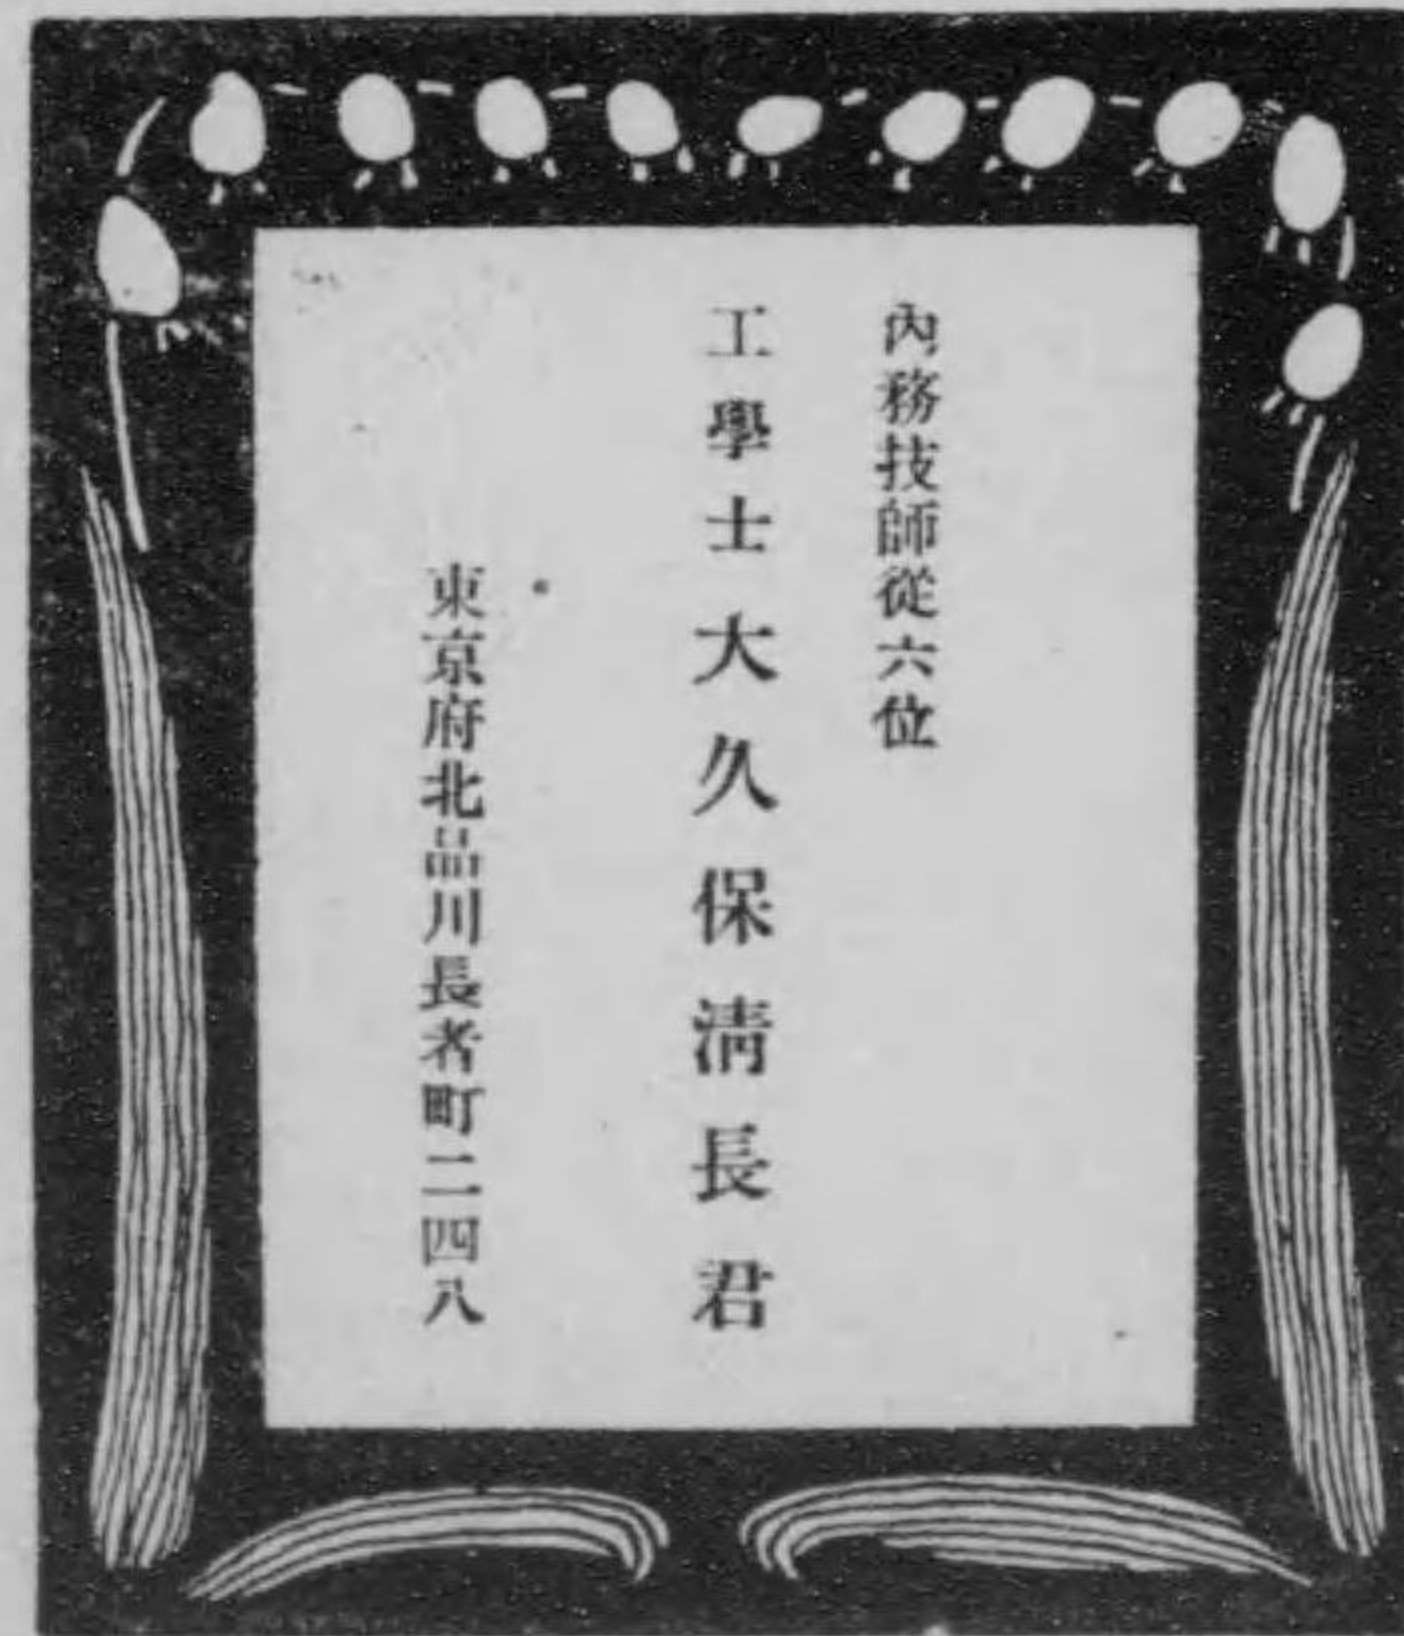 內務技師從六位
工學士大久保淸長君
東京府北品川長者町二四八